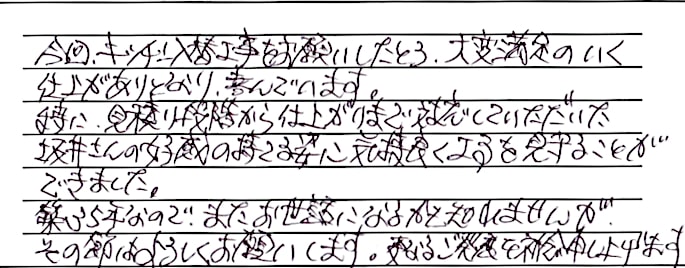 今回、キッチン入替工事をお願いしたところ、大変満足のいく
仕上がりとなり、喜んでいます。
特に、見積り段階から仕上がりまで対応していただいた
坂井さんの好感の持てる姿に気持良く
できました。
築35年なので、またお世話になるかも知れませんが、
その節はよろしくお願いします。ご発展を祈念申し上げます